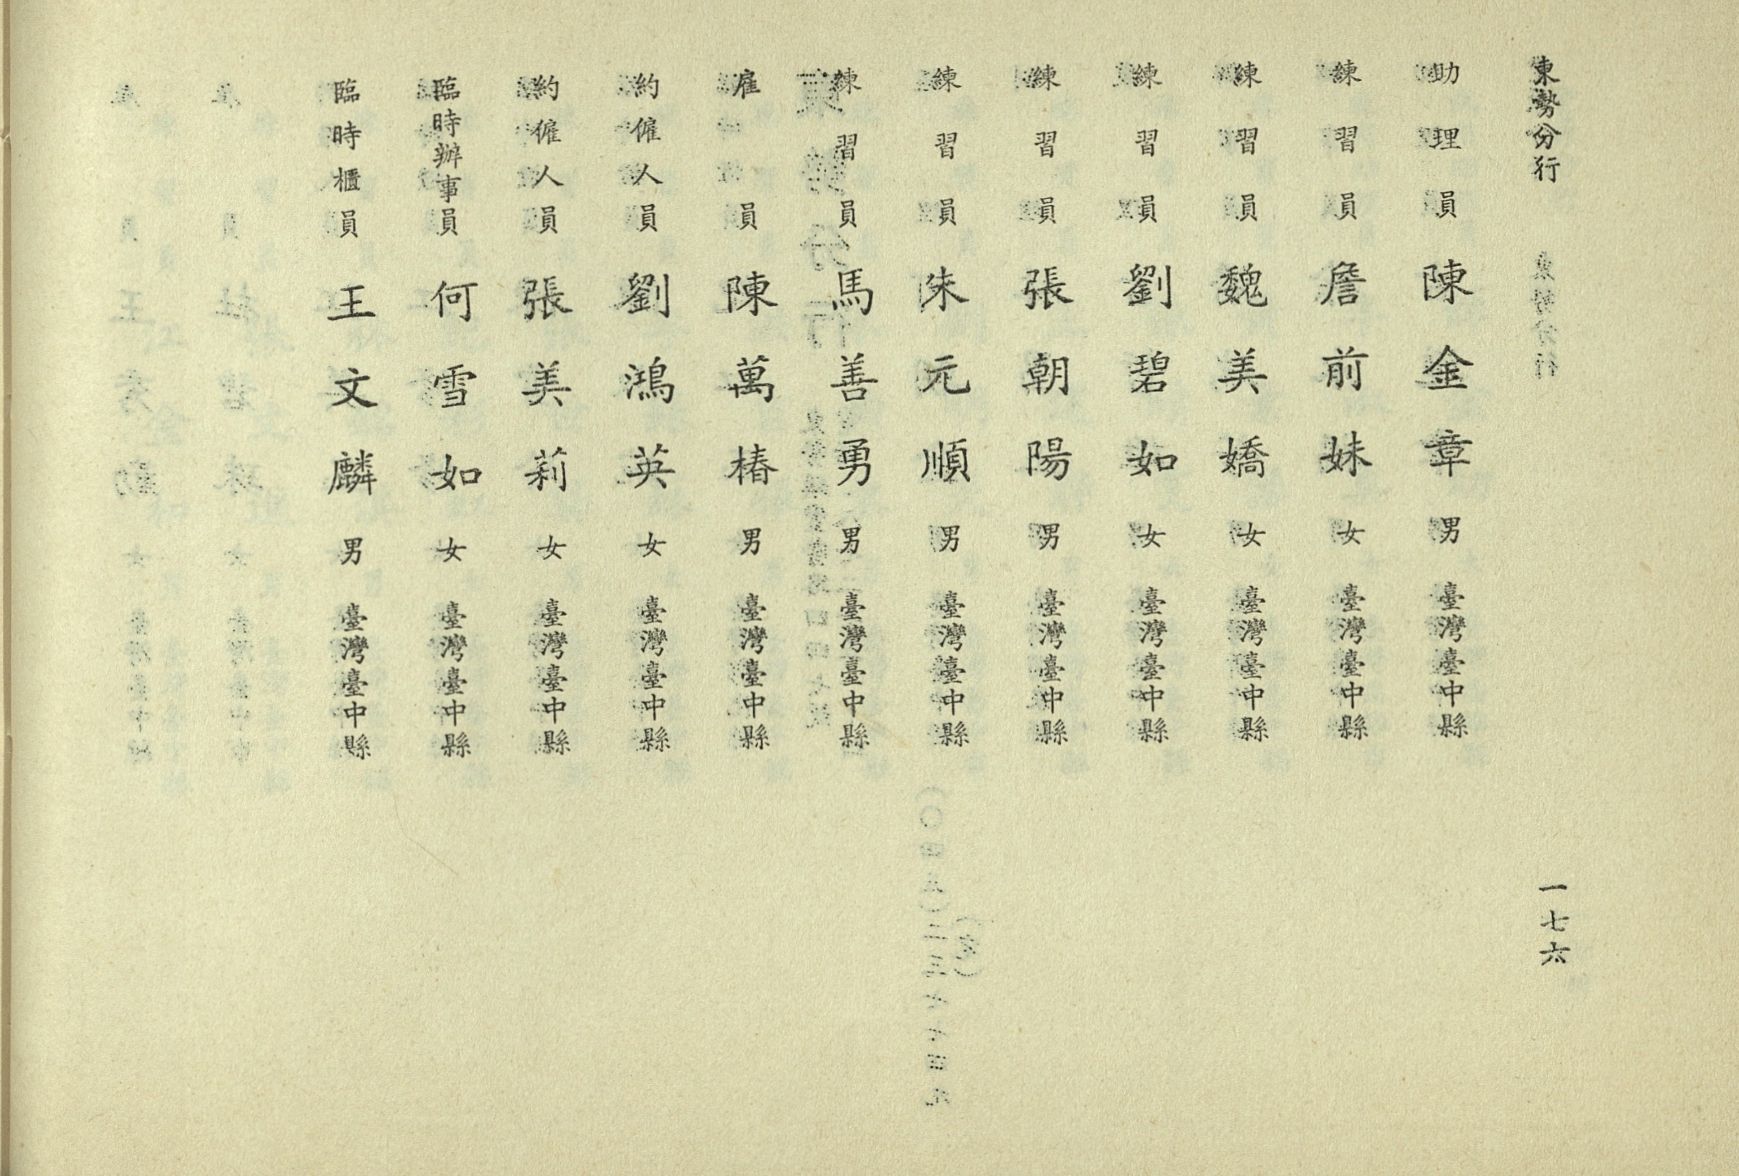 東勢分行
一七六
助理員 陳金章 男 臺灣臺中縣
練習員 詹前妹 女 臺灣臺中縣
練習員 魏美嬌 女 臺灣臺中縣
練習員 劉碧如 女 臺灣臺中縣
練習員 張朝陽 男 臺灣臺中縣
練習員 朱元順 男 臺灣臺中縣
練習員 馬善勇 男 臺灣臺中縣
雇員 陳萬椿 男 臺灣臺中縣
約僱人員 劉鴻英 女 臺灣臺中縣
約僱人員 張美莉 女 臺灣臺中縣
臨時辦事員 何雪如 女 臺灣臺中縣
臨時櫃員 王文麟 男 臺灣臺中縣